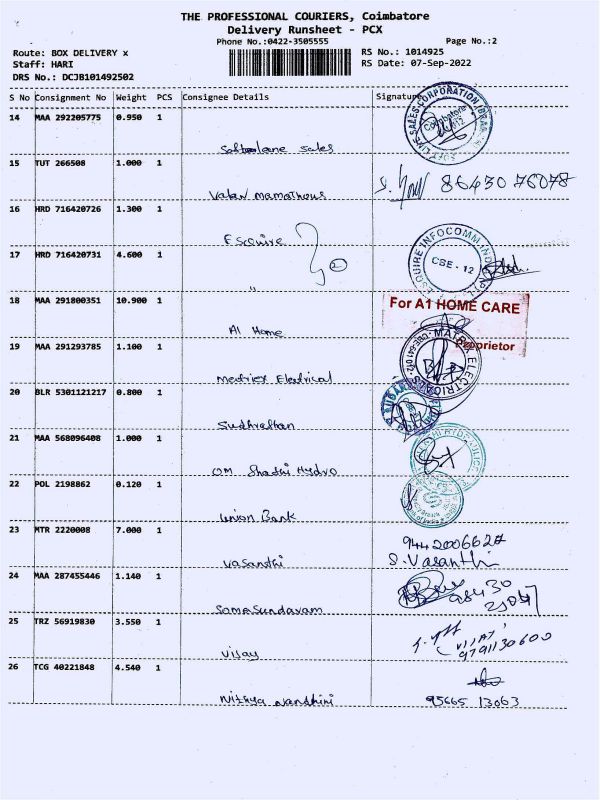 THE PROFESSIONAL COURIERS, Coimbatore
Delivery Runsheet - PCX
Phone No.:0422-3505555 Page No.:2
Route: BOX DELIVERY x RS No.: 1014925
Staff: HARI RS Date: 07-Sep-2022
DRS No.: DCJB101492502
S No Consignment No Weight PCS Consignee Details Signature
14 MAA 292205775 0.950 1
Softlane Sales
15 TUT 266508 1.000 1
86430 76078
16 HRD 716420726 1.300 1
Esquire
17 HRD 716420731 4.600 1
② 
"
ESQUIRE INFOCOMM
CBE - 12
18 MAA 291800351 10.900 1
A1 Home
For A1 HOME CARE
Proprietor
19 MAA 291293785 1.100 1
Matriex Electrical
20 BLR 5301121217 0.800 1
Sudharshan
21 MAA 568096408 1.000 1
OM Shakthi Hydro
22 POL 2198862 0.120 1
Union Bank
23 MTR 2220008 7.000 1
Vasanthi
S. Vasanthi
24 MAA 287455446 1.140 1
Somasundaram
25 TRZ 56919830 3.550 1
Vijay
VIJAY
9791130600
26 TCG 40221848 4.540 1
Nithya Nandhini
95665 13063